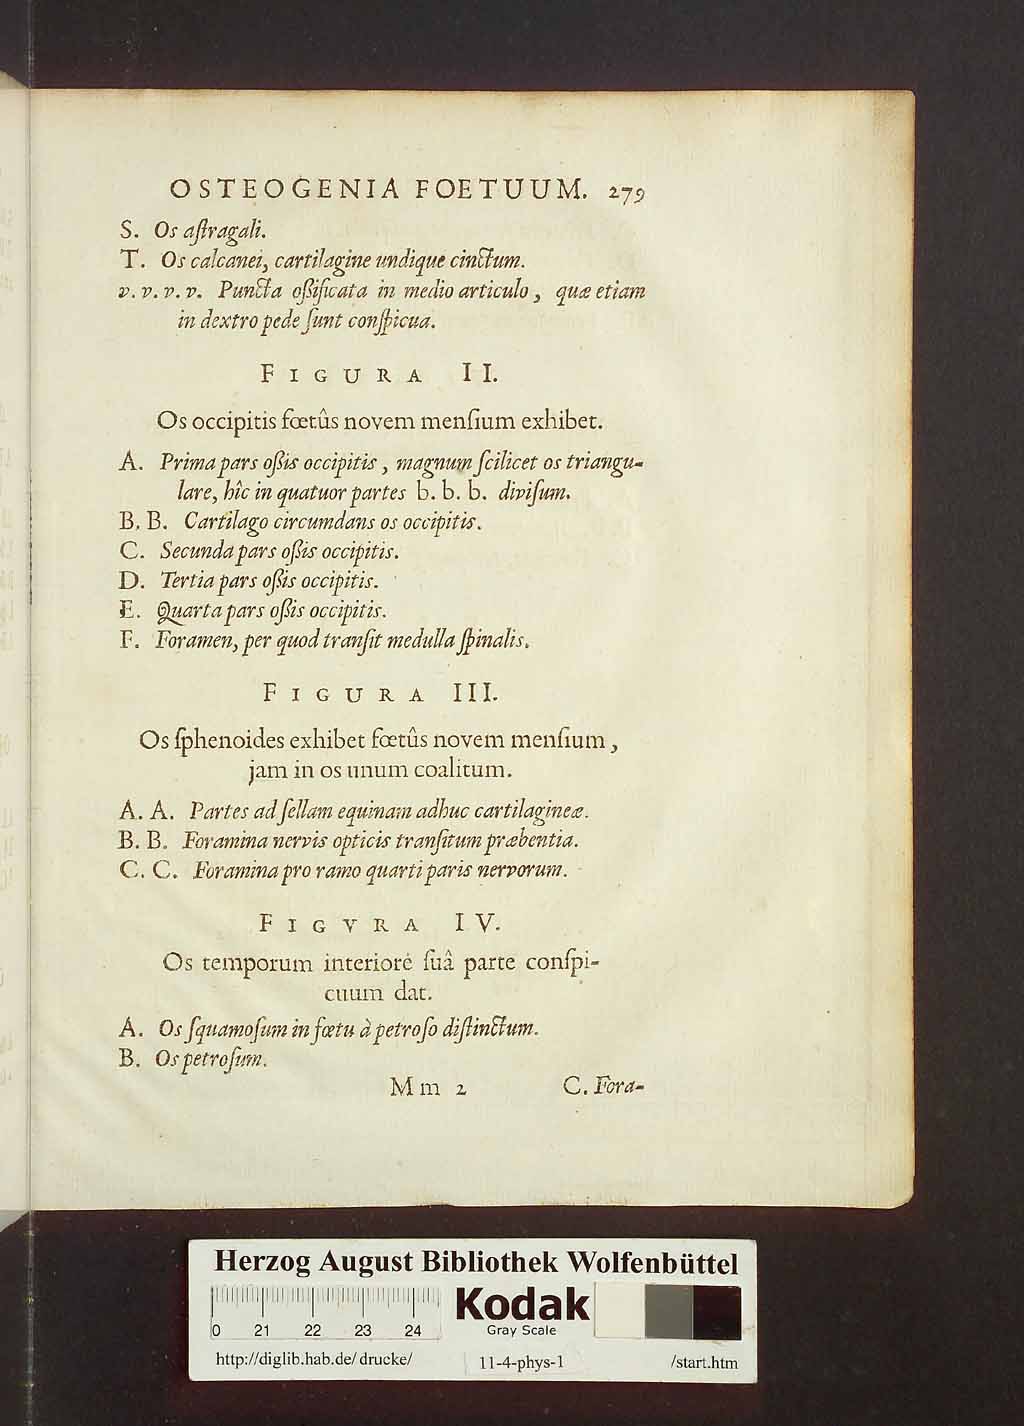 OSTEOGENIA FOETUUM. 279
S. Os aſtragali.
T. Os calcanei, cartilagine undique cinctum.
v. v. v. v. Puncta oßificata in medio articulo, quæ etiam
in dextro pede ſunt conſpicua.
FIGURA II.
Os occipitis fœtûs novem menſium exhibet.
A. Prima pars oßis occipitis, magnum ſcilicet os triangu-
lare, hîc in quatuor partes b. b. b. diviſum.
B. B. Cartilago circumdans os occipitis.
C. Secunda pars oßis occipitis.
D. Tertia pars oßis occipitis.
E. Quarta pars oßis occipitis.
F. Foramen, per quod tranſit medulla ſpinalis.
FIGURA III.
Os ſphenoides exhibet fœtûs novem menſium,
jam in os unum coalitum.
A. A. Partes ad ſellam equinam adhuc cartilagineæ.
B. B. Foramina nervis opticis tranſitum præbentia.
C. C. Foramina pro ramo quarti paris nervorum.
FIGVRA IV.
Os temporum interiore ſuâ parte conſpi-
cuum dat.
A. Os ſquamoſum in fœtu à petroſo diſtinctum.
B. Os petroſum.
Mm 2 C. Fora-
Herzog August Bibliothek Wolfenbüttel
Kodak
Gray Scale
0 21 22 23 24
http://diglib.hab.de/drucke/ 11-4-phys-1 /start.htm